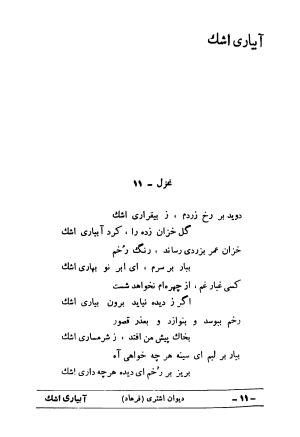 آبیاری اشک
غزل - ۱۱
دوید بر رخ زردم ، ز بیقراری اشک
گل خزان زده را ، کرد آبیاری اشک
خزان عمر بزردی رساند ، رنگ رُخم
ببار بر سرم ، ای ابر نو بهاری اشک
کسی غبار غم ، از چهره‌ام نخواهد شست
اگر ز دیده نیاید برون بیاری اشک
رخم ببوسد و بنوازد و بعذر قصور
بخاک پیش من افتد ، ز شرمساری اشک
بیار بر لبم ای سینه هر چه خواهی آه
بریز بر رُخم ای دیده هرچه داری اشک
- ۱۱ -
دیوان اشتری (فرهاد)
آبیاری اشک